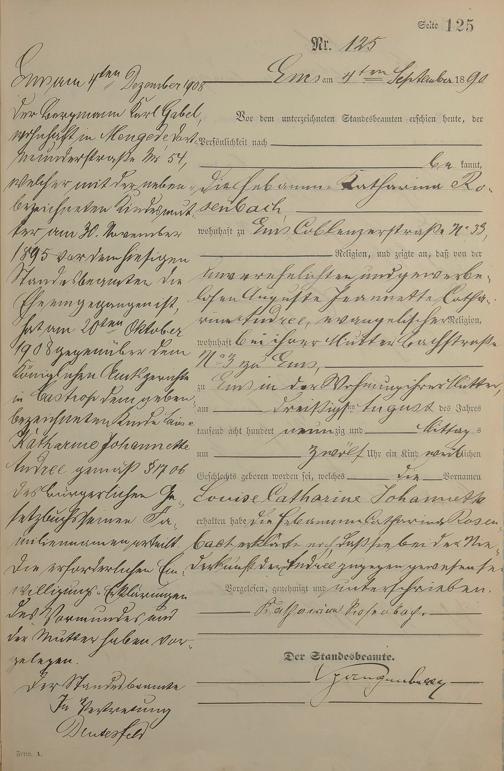 Seite 125
Nr. 125
Ems am 4ten September 1890
Vor dem unterzeichneten Standesbeamten erschien heute, der
Persönlichkeit nach
be kannt,
die Hebamme Katharina Ro-
senbach
wohnhaft zu Ems Coblenzerstraße No 33,
Religion, und zeigte an, daß von der
unverehelichten und gewerbe-
losen Auguste Jeannette Catha-
rine Andree, evangelischer Religion,
wohnhaft bei ihrer Mutter Bachstraße
No 3 zu Ems,
zu Ems in der Wohnung ihrer Mutter,
am dreißigsten August des Jahres
tausend acht hundert neunzig und Mittags
um zwölf Uhr ein Kind weiblichen
Geschlechts geboren worden sei, welches die Vornamen
Louise Catharine Johannette
erhalten habe die Hebamme Katharina Rosen-
bach erklärte noch daß sie bei der Nie-
derkunft der Andree zugegen gewesen sei
Vorgelesen, genehmigt und unterschrieben.
Katharina Rosenbach
Der Standesbeamte.
Ems am 4ten Dezember 1908
Der Bergmann Karl Gabel,
wohnhaft in Mengede Dort-
munderstraße No 54,
welcher mit der neben-
bezeichneten Kindesmut-
ter am 30. November
1895 vor dem hiesigen
Standesbeamten die
Ehe eingegangen ist,
hat am 20ten Oktober
1908 gegenüber dem
Königlichen Amtsgerichte
in Castrop dem neben-
bezeichneten Kinde
Katharine Johannette
Andree gemäß § 1706
des Bürgerlichen Ge-
setzbuchs seinen Fa-
miliennamen erteilt
Die erforderlichen Ein-
willigungs-Erklärungen
des Vormundes und
der Mutter haben vor-
gelegen.
Der Standesbeamte
In Vertretung
Form. A.